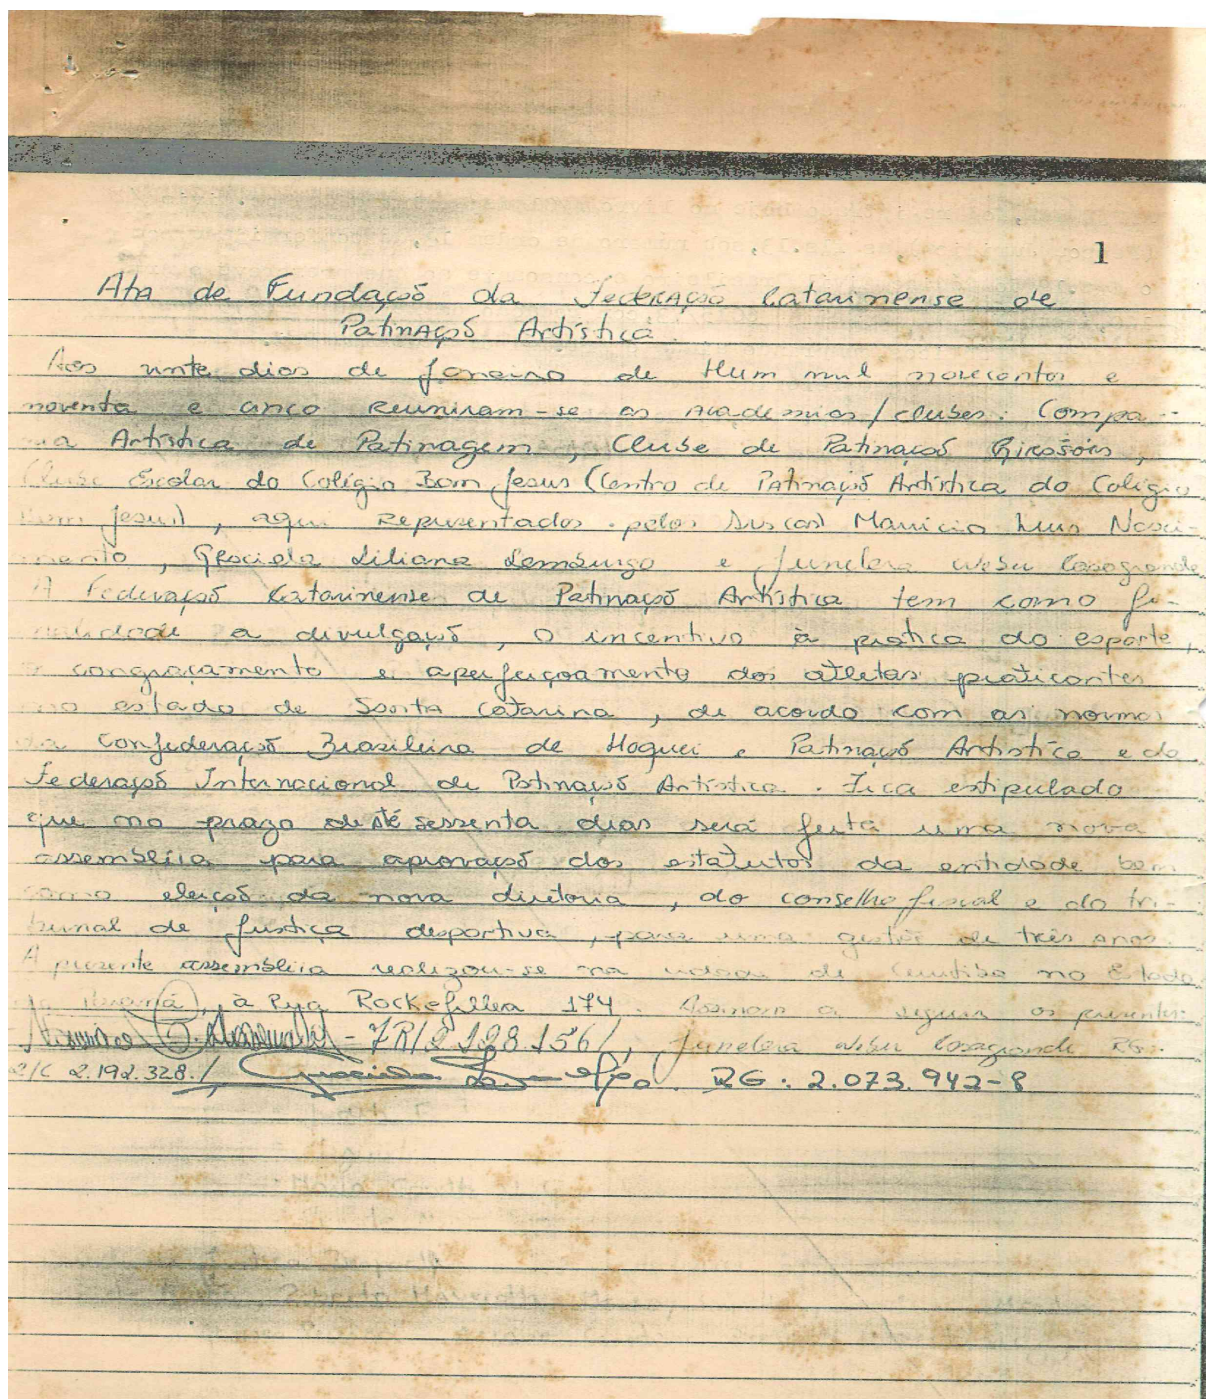 1
Ata de Fundação da Federação Catarinense de
Patinação Artística.
Aos vinte dias de Janeiro de Hum mil novecentos e
noventa e cinco reuniram-se as Academias/clubes: Compa-
ia Artística de Patinagem, Clube de Patinação Girassóis,
Clube Escolar do Colégio Bom Jesus (Centro de Patinação Artística do Colégio
Bom Jesus), aqui representados pelos Mauricio Luis Nasci-
mento, Graciela Liliana e weber Casagrande
A Federação Catarinense de Patinação Artística tem como fi-
nalidade a divulgação, o incentivo à prática do esporte,
o congraçamento e aperfeiçoamento dos atletas praticantes
no estado de Santa Catarina, de acordo com as normas
da Confederação Brasileira de Hoquei e Patinação Artística e da
Federação Internacional de Patinação Artística. Fica estipulado
que no prazo de até sessenta dias será feita uma nova
assembléia para aprovação dos estatutos da entidade bem
como eleição da nova diretoria, do conselho fiscal e do tri-
bunal de justiça desportiva, para uma gestão de três anos.
A presente assembléia realizou-se na cidade de Curitiba no Estado
do Paraná, à Rua Rockefeller 174. Assinam a seguir os presentes:
- 7R/2.128.156/, weber Casagrande RG:
2/C 2.192.328./ RG. 2.073.942-8